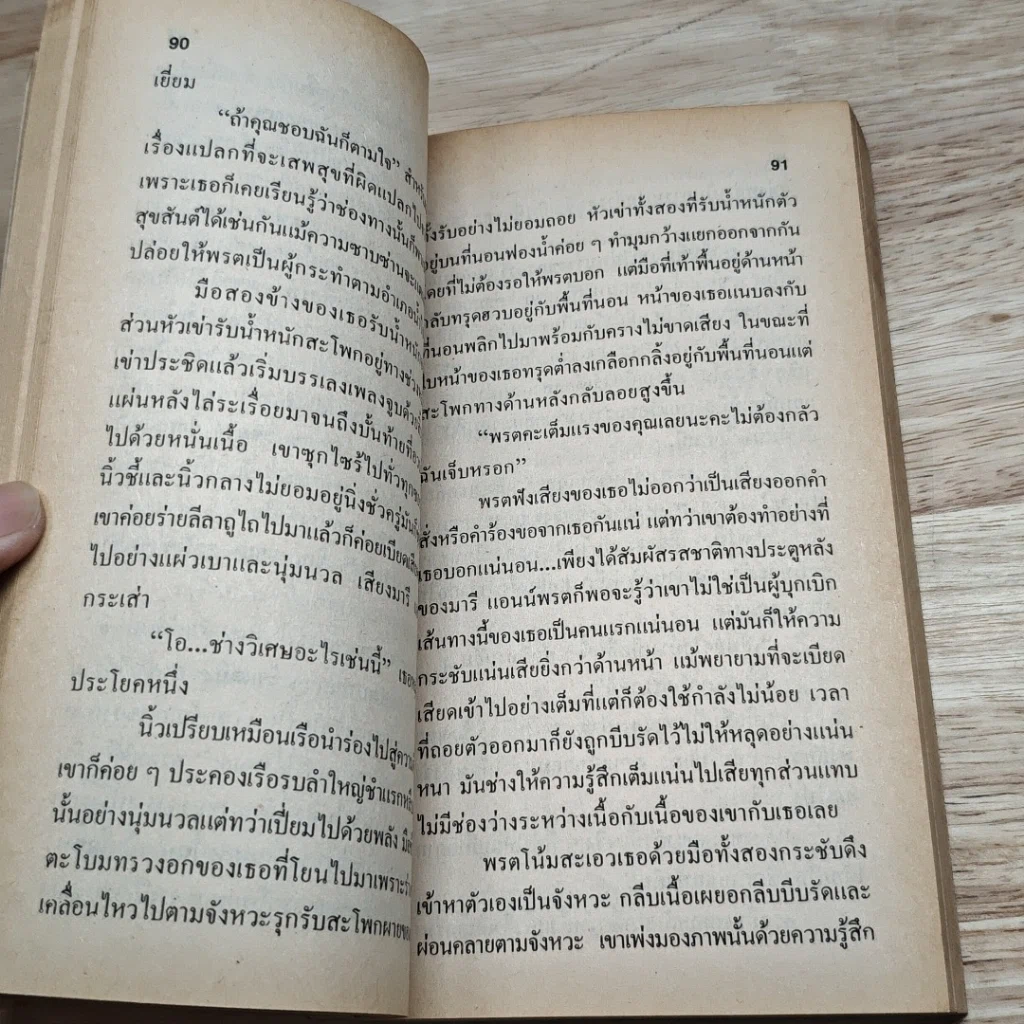 90
เยี่ยม
“ถ้าคุณชอบฉันก็ตามใจ”
เรื่องแปลกที่จะเสพสุขที่ผิดแปลก
เพราะเธอก็เคยเรียนรู้ว่าช่องทางนั้นก็
สุขสันต์ได้เช่นกันแม้ความซาบซ่านจะ
ปล่อยให้พรตเป็นผู้กระทำตามอำเภอ
มือสองข้างของเธอรับน้ำหนัก
ส่วนหัวเข่ารับน้ำหนักสะโพกอยู่ทาง
เข่าประชิดแล้วเริ่มบรรเลงเพลงจูบ
แผ่นหลังไล่ระเรื่อยมาจนถึงบั้นท้ายที่
ไปด้วยหนั่นเนื้อ เขาซุกไซร้ไปทั่ว
นิ้วชี้และนิ้วกลางไม่ยอมอยู่นิ่งชั่วครู่
เขาค่อยร่ายลีลาถูไถไปมาแล้วก็ค่อยเบียด
ไปอย่างแผ่วเบาและนุ่มนวล เสียงมารี
กระเส่า
“โอ...ช่างวิเศษอะไรเช่นนี้”
ประโยคหนึ่ง
นิ้วเปรียบเหมือนเรือนำร่องไปสู่
เขาก็ค่อย ๆ ประคองเรือรบลำใหญ่ชำแรก
นั้นอย่างนุ่มนวลแต่ทว่าเปี่ยมไปด้วยพลัง
ตะโบมทรวงอกของเธอที่โยนไปมาเพราะ
เคลื่อนไหวไปตามจังหวะรุกรับสะโพกผาย
91
รับอย่างไม่ยอมถอย หัวเข่าทั้งสองที่รับน้ำหนักตัว
อยู่บนที่นอนฟองน้ำค่อย ๆ ทำมุมกว้างแยกออกจากกัน
โดยที่ไม่ต้องรอให้พรตบอก แต่มือที่เท้าพื้นอยู่ด้านหน้า
กลับทรุดฮวบอยู่กับพื้นที่นอน หน้าของเธอแนบลงกับ
ที่นอนพลิกไปมาพร้อมกับครางไม่ขาดเสียง ในขณะที่
ใบหน้าของเธอทรุดต่ำลงเกลือกกลิ้งอยู่กับพื้นที่นอนแต่
สะโพกทางด้านหลังกลับลอยสูงขึ้น
“พรตคะเต็มแรงของคุณเลยนะคะไม่ต้องกลัว
ฉันเจ็บหรอก”
พรตฟังเสียงของเธอไม่ออกว่าเป็นเสียงออกคำ
สั่งหรือคำร้องขอจากเธอกันแน่ แต่ทว่าเขาต้องทำอย่างที่
เธอบอกแน่นอน...เพียงได้สัมผัสรสชาติทางประตูหลัง
ของมารี แอนน์พรตก็พอจะรู้ว่าเขาไม่ใช่เป็นผู้บุกเบิก
เส้นทางนี้ของเธอเป็นคนแรกแน่นอน แต่มันก็ให้ความ
กระชับแน่นเสียยิ่งกว่าด้านหน้า แม้พยายามที่จะเบียด
เสียดเข้าไปอย่างเต็มที่แต่ก็ต้องใช้กำลังไม่น้อย เวลา
ที่ถอยตัวออกมาก็ยังถูกบีบรัดไว้ไม่ให้หลุดอย่างแน่น
หนา มันช่างให้ความรู้สึกเต็มแน่นไปเสียทุกส่วนแทบ
ไม่มีช่องว่างระหว่างเนื้อกับเนื้อของเขากับเธอเลย
พรตโน้มสะเอวเธอด้วยมือทั้งสองกระชับดึง
เข้าหาตัวเองเป็นจังหวะ กลีบเนื้อเผยอกลีบบีบรัดและ
ผ่อนคลายตามจังหวะ เขาเพ่งมองภาพนั้นด้วยความรู้สึก